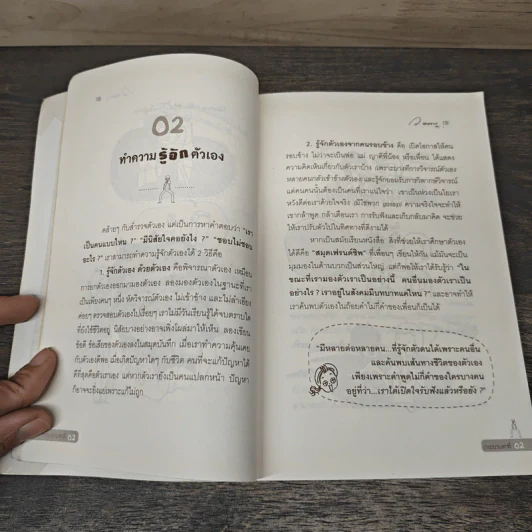 02
ทำความ รู้จัก ตัวเอง
คล้ายๆ กับสำรวจตัวเอง แต่เป็นการหาคำตอบว่า "เรา
เป็นคนแบบไหน ?" "มีนิสัยใจคอยังไง ?" "ชอบไม่ชอบ
อะไร ?" เราสามารถทำความรู้จักตัวเองได้ 2 วิธีคือ
1. รู้จักตัวเอง ด้วยตัวเอง คือพิจารณาตัวเอง เหมือน
กายกำลังออกมามองตัวเอง ลองมองตัวเองในฐานะที่เรา
เป็นเพียงคนๆ หนึ่ง หัดวิจารณ์ตัวเอง ไม่เข้าข้าง และไม่ลำเอียง
ค่อยๆ ตรวจสอบตัวเองไปเรื่อยๆ เราไม่มีวันเรียนรู้ได้จบตราบใด
ที่ยังใช้ชีวิตอยู่ นิสัยบางอย่างอาจเพิ่งโผล่มาให้เห็น ลองเขียน
ข้อดี ข้อเสียของตัวเองลงในสมุดบันทึก เมื่อเราทำความคุ้นเคย
กับตัวเองดีพอ เมื่อเกิดปัญหาใดๆ กับชีวิต คนที่จะแก้ปัญหาได้
ดีที่สุดคือตัวเราเอง แต่หากตัวเรายังเป็นคนแปลกหน้า ปัญหา
ก็อาจจะยิ่งแย่เพราะแก้ไม่ถูก
02
2. รู้จักตัวเองจากคนรอบข้าง คือ เปิดโอกาสให้คน
รอบข้าง ไม่ว่าจะเป็นพ่อ แม่ ญาติพี่น้อง หรือเพื่อน ได้แสดง
ความคิดเห็นเกี่ยวกับตัวเราบ้าง เพราะบางทีการวิจารณ์ตัวเอง
หลายคนก็ตัวเข้าข้างตัวเอง และรู้จักยอมรับการวิพากษ์วิจารณ์
แต่คนคนนั้นต้องเป็นคนที่เราแน่ใจว่า เขาเป็นห่วงเป็นใยเรา
หวังดีต่อเราด้วยใจจริง
เขากล้าพูด กล้าเตือนเรา การรับฟังและเก็บกลับมาคิด จะช่วย
ให้เราปรับตัวไปในทิศทางที่ดีงามได้
หากเป็นสมัยเรียนหนังสือ สิ่งที่ช่วยให้เราศึกษาตัวเอง
ได้ดีคือ "สมุดเฟรนด์ชิพ" ที่เพื่อนๆ เขียนให้กัน แม้มันจะเป็น
มุมมองในด้านบวกเป็นส่วนใหญ่ แต่ก็พอให้เราได้รับรู้ว่า "ใน
ขณะที่เรามองตัวเราเป็นอย่างนี้ คนอื่นมองตัวเราเป็น
อย่างไร ? เราอยู่ในสังคมมีบทบาทแค่ไหน ?" และอาจทำให้
เราค้นพบตัวเองในถ้อยคำไม่กี่คำของเพื่อนก็เป็นได้
"มีหลายต่อหลายคน...ที่รู้จักตัวตนได้เพราะคนอื่น
และค้นพบเส้นทางชีวิตของตัวเอง
เพียงเพราะคำพูดไม่กี่คำของใครบางคน
อยู่ที่ว่า...เราได้เปิดใจรับฟังแล้วหรือยัง ?"
02